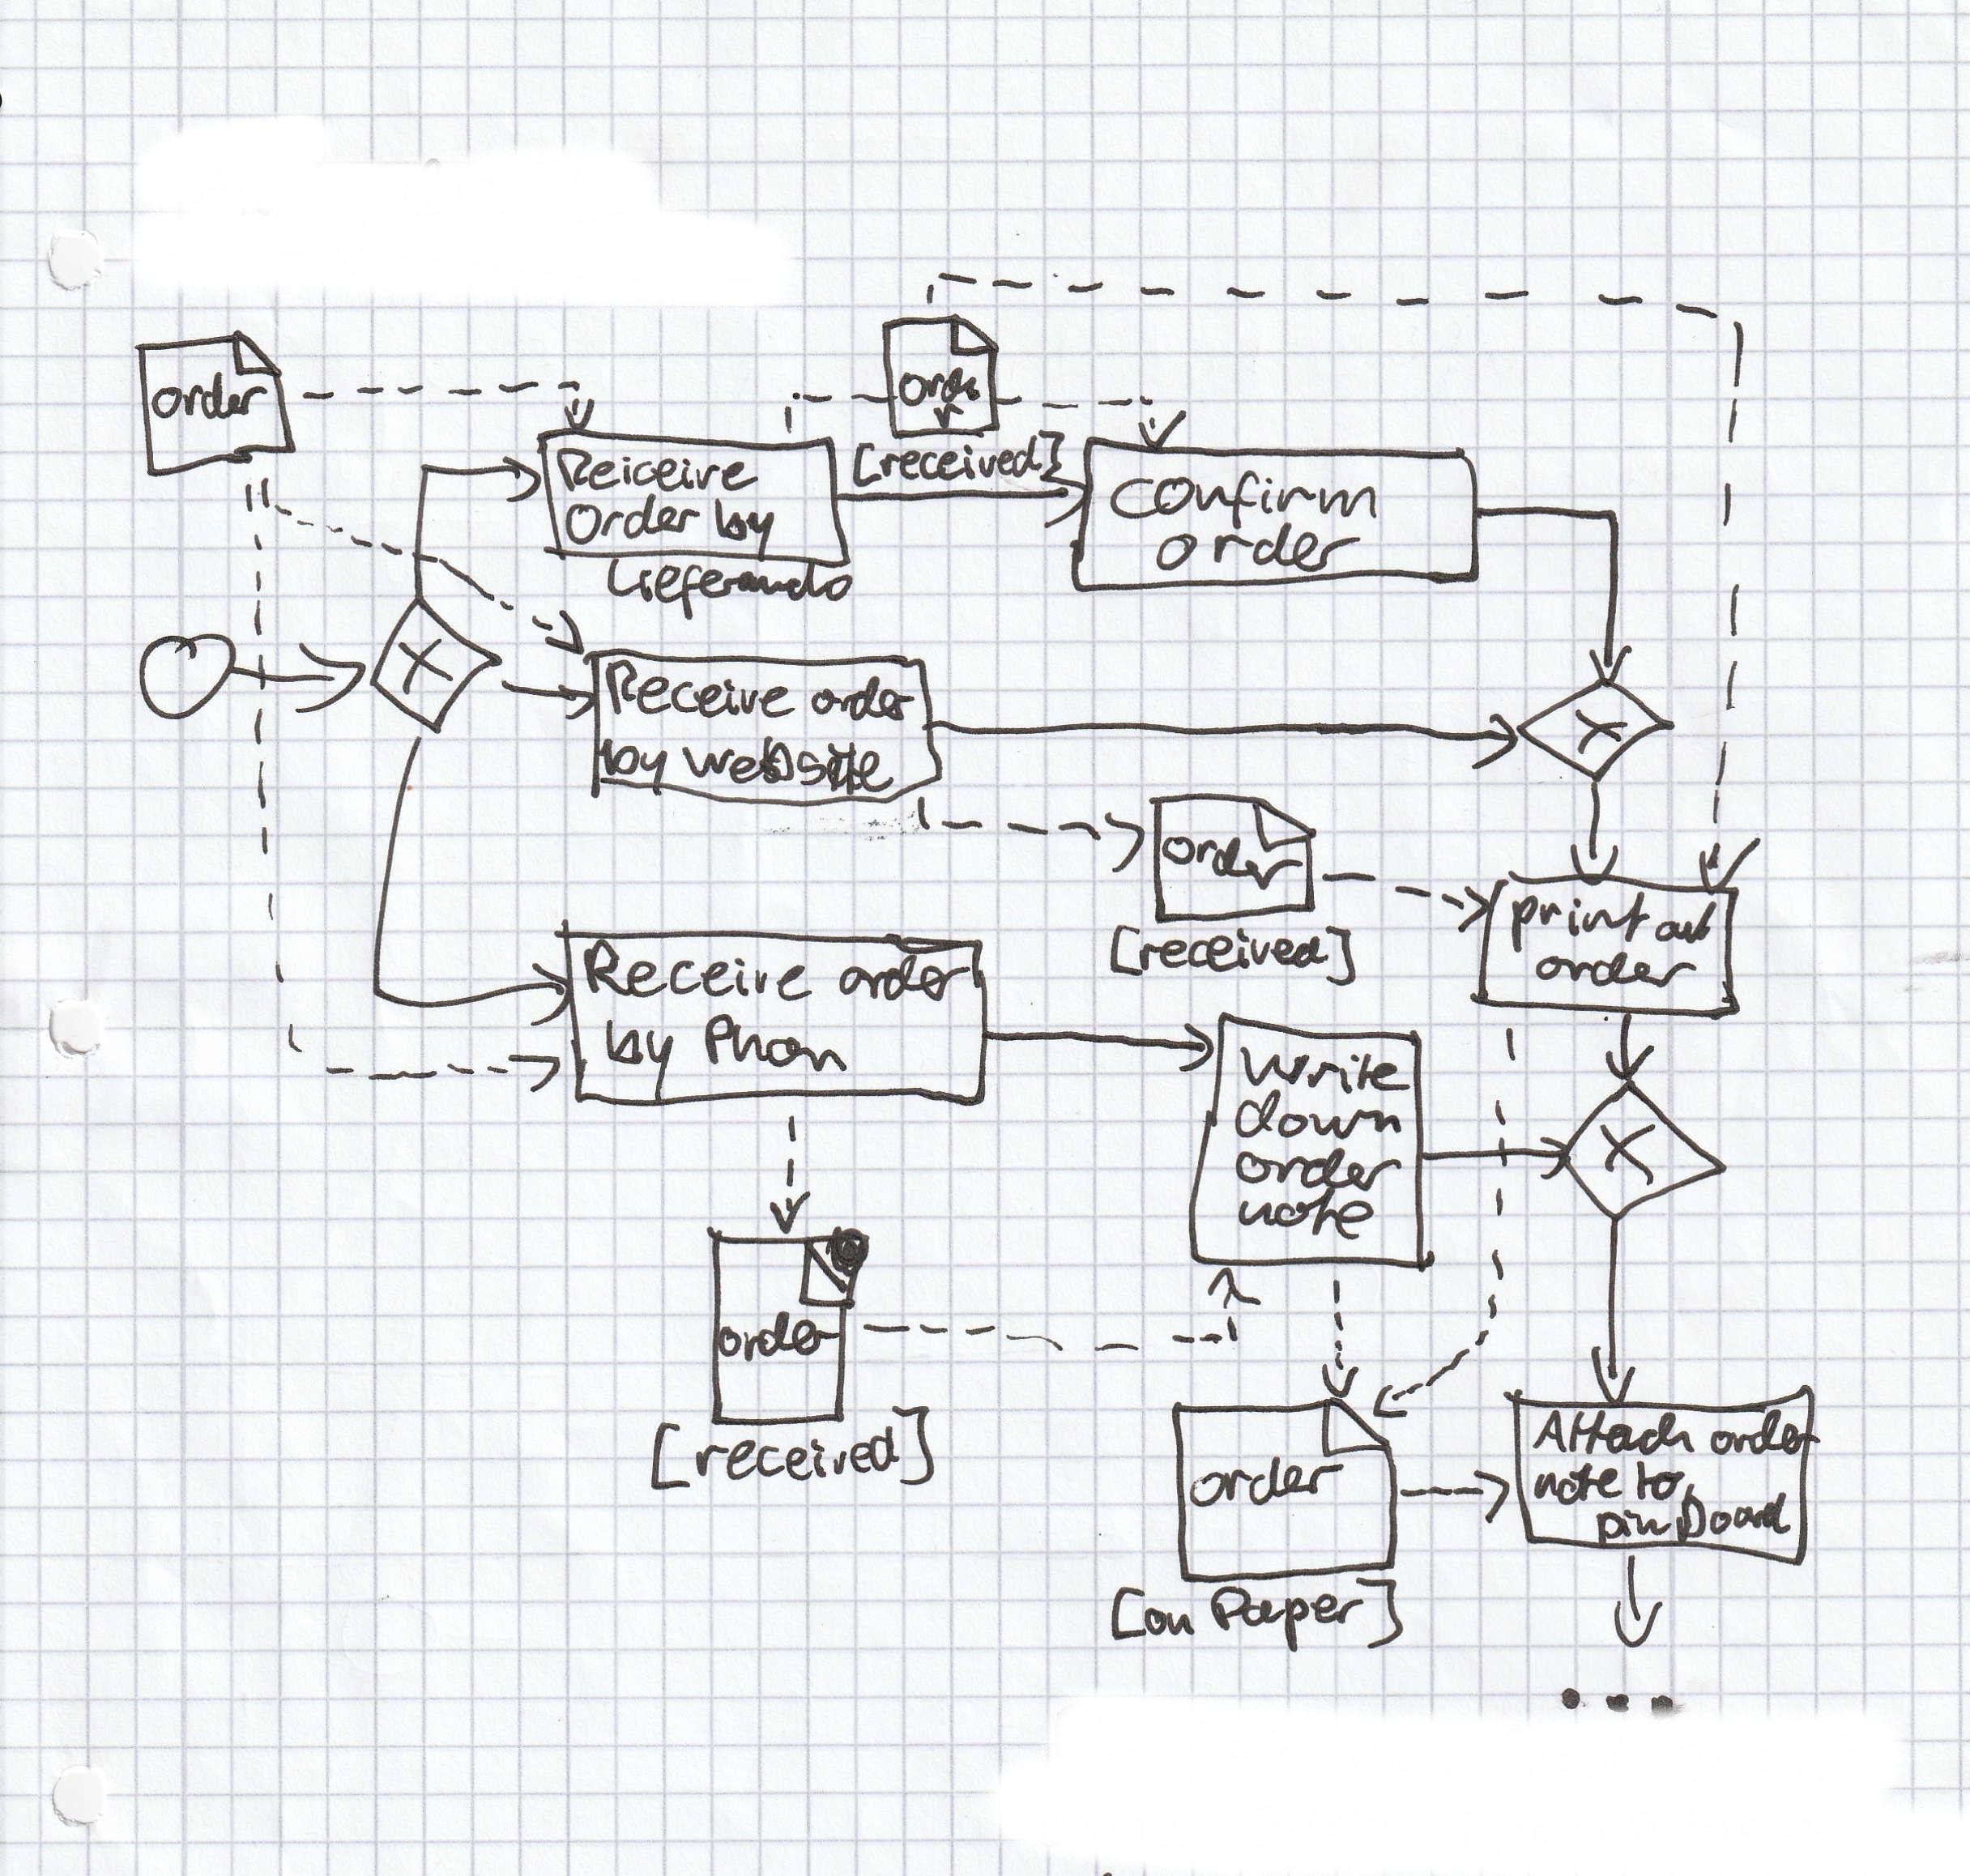 order
orde
r
[received]
Reiceive
Order by
Lieferando
confirm
order
X
Receive order
by website
X
order
[received]
print out
order
Receive order
by Phon
Write
down
order
note
X
order
[received]
order
[on Paper]
Attach order
note to
pin Board
...